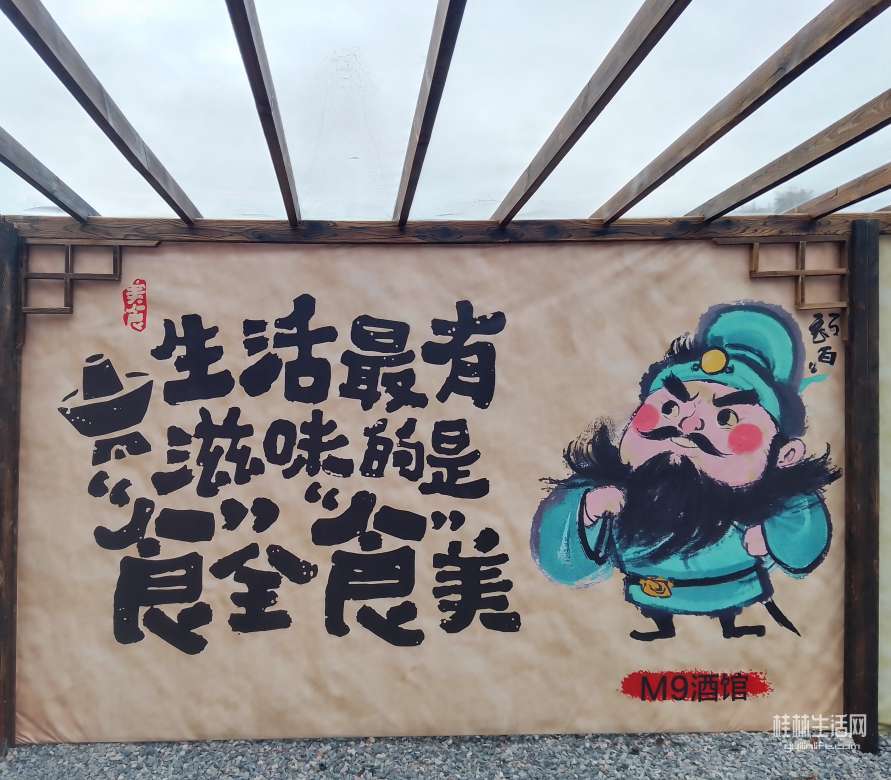 生活最有
滋味的是
“食”全“食”美
M9酒馆
桂林生活网
guilinlife.com